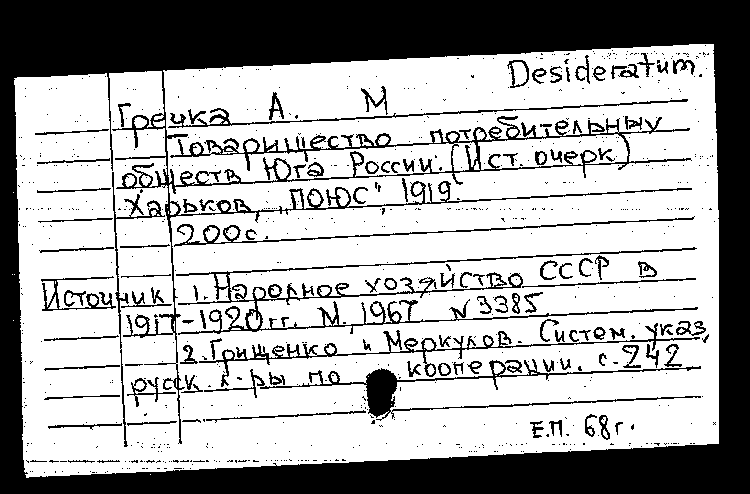 Desideratum.
Гречка А. М
Товарищество потребительных
обществ Юга России. (Ист. очерк)
Харьков, „ПОЮС" 1919.
200с.
Источник 1. Народное хозяйство СССР в
1917-1920 гг. М. 1967 N 3385
2. Грищенко и Меркулов. Систем. указ.
русск. л-ры по кооперации. с. 242.
Е.П. 68г.